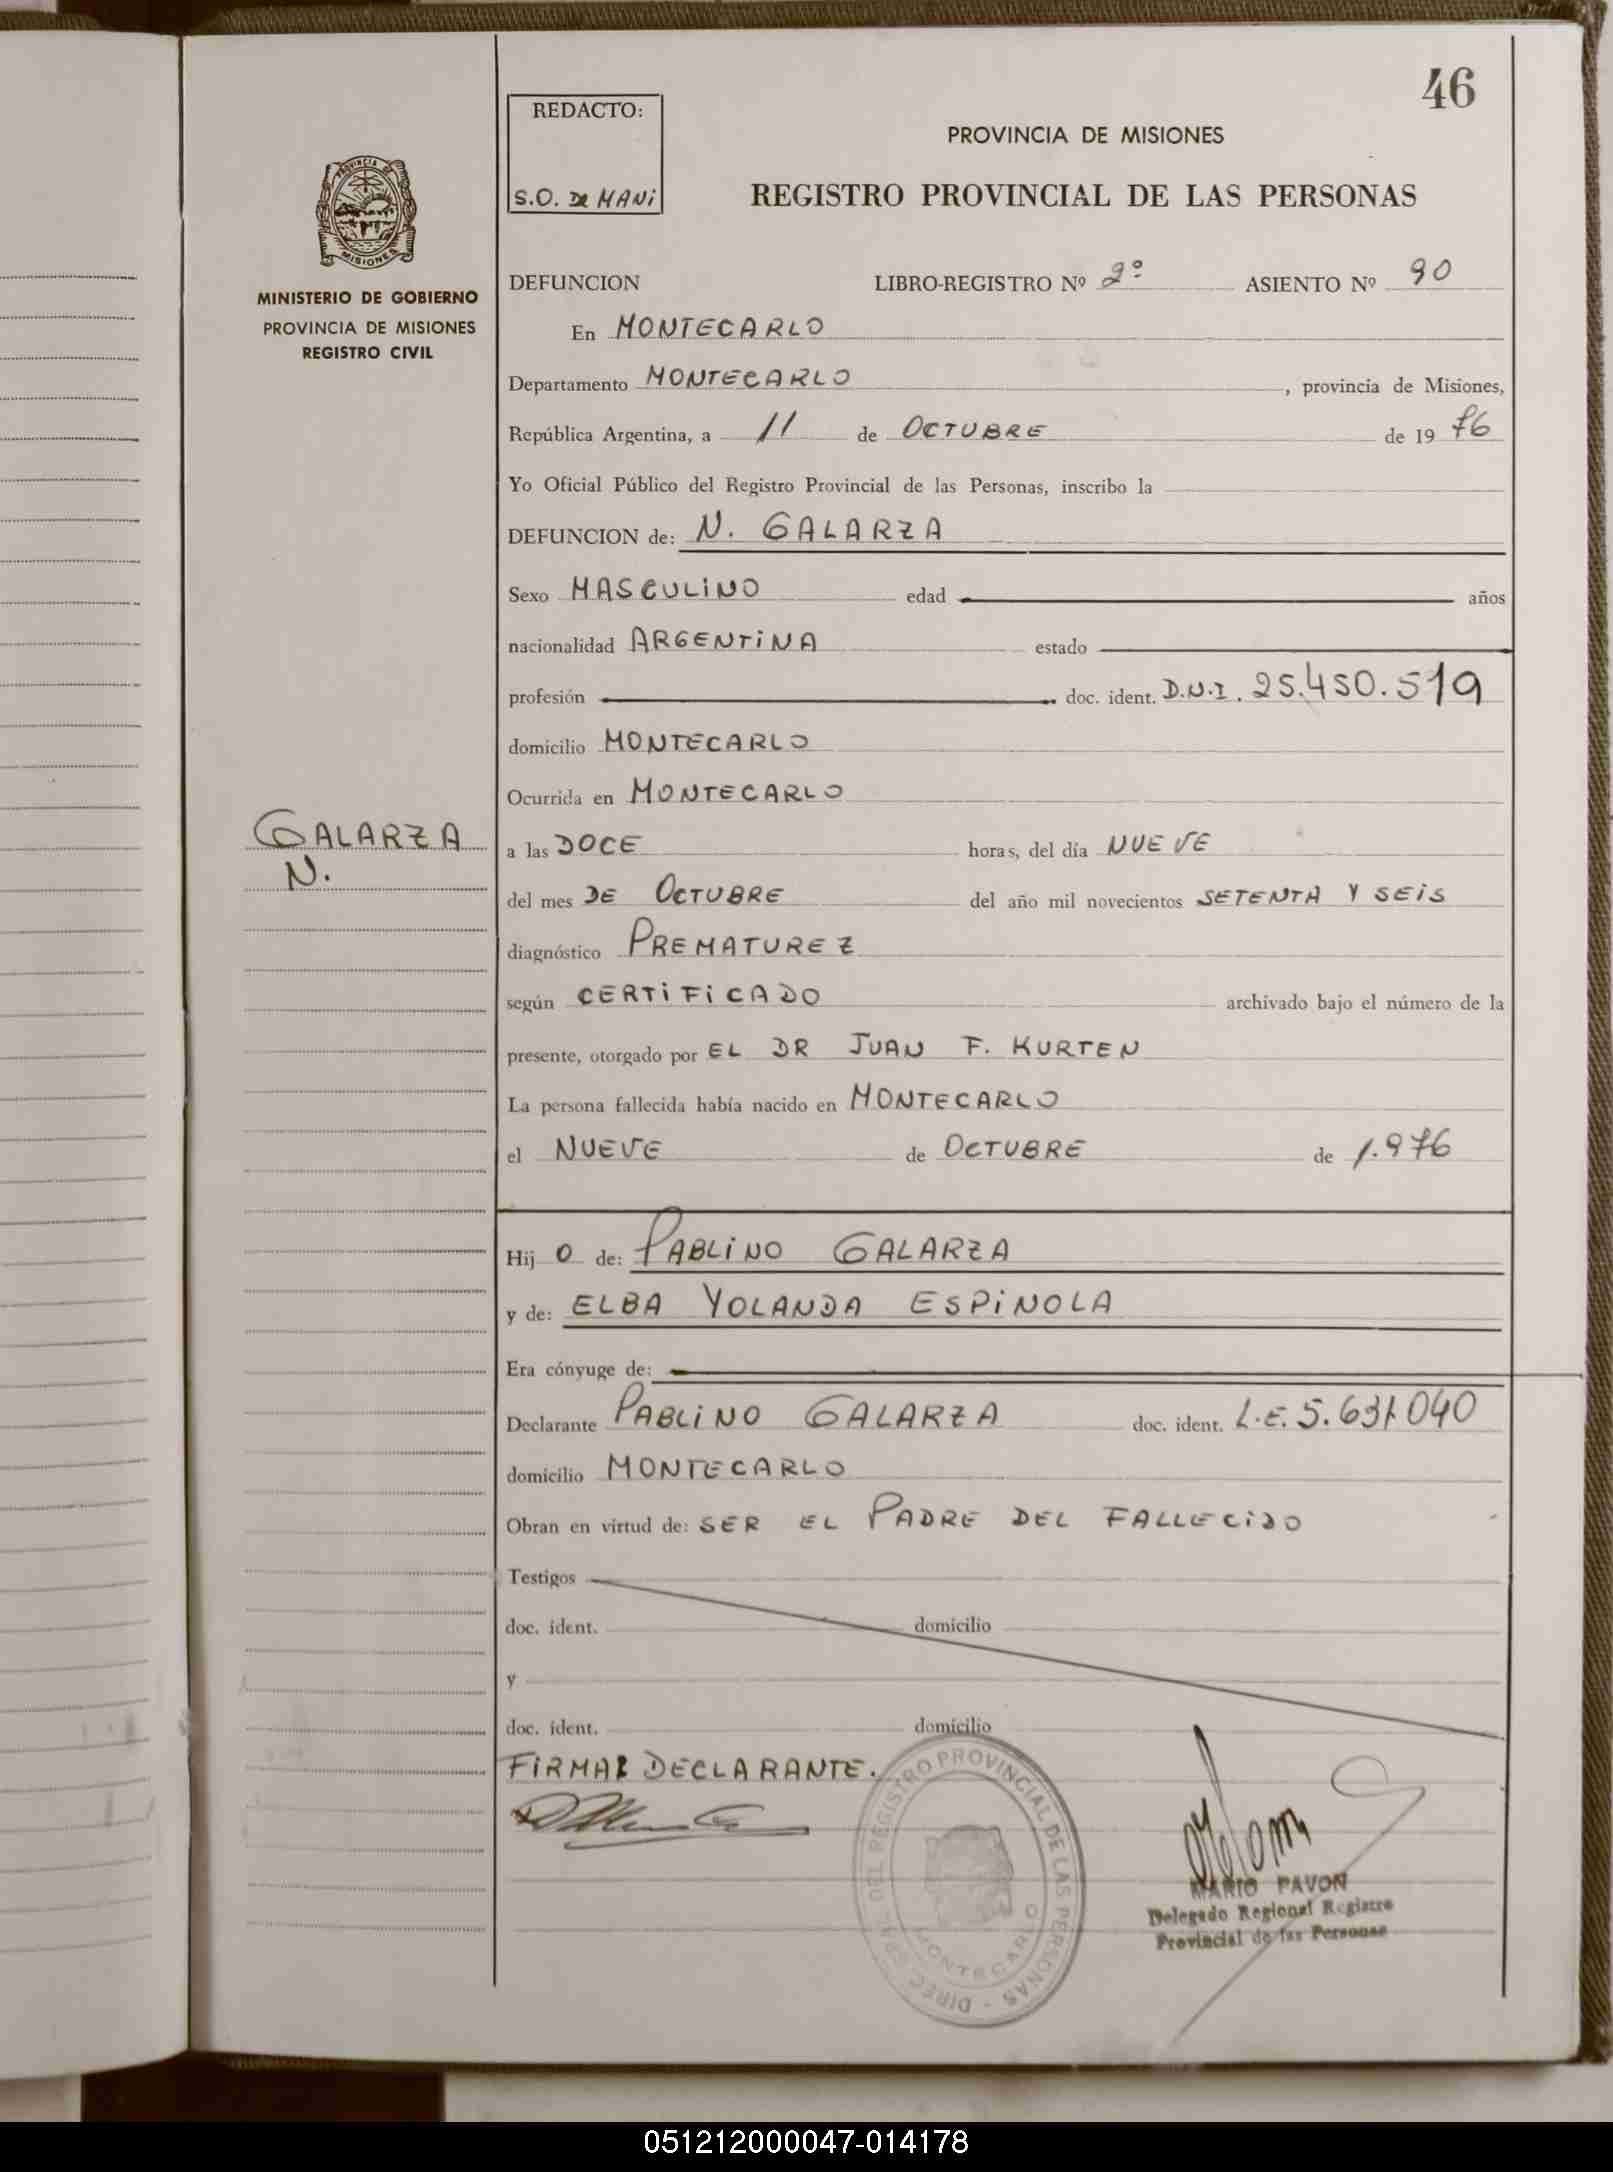 46
REDACTO:
S.O. DE MANi
PROVINCIA DE MISIONES
REGISTRO PROVINCIAL DE LAS PERSONAS
PROVINCIA DE
MISIONES
MINISTERIO DE GOBIERNO
PROVINCIA DE MISIONES
REGISTRO CIVIL
DEFUNCION LIBRO-REGISTRO Nº 2º ASIENTO Nº 90
En MONTECARLO
Departamento MONTECARLO, provincia de Misiones,
República Argentina, a 11 de OCTUBRE de 19 76
Yo Oficial Público del Registro Provincial de las Personas, inscribo la
DEFUNCION de: N. GALARZA
Sexo MASCULINO edad años
nacionalidad ARGENTINA estado
profesión doc. ident. D.N.I. 25.450.519
domicilio MONTECARLO
Ocurrida en MONTECARLO
GALARZA
N.
a las DOCE horas, del día NUEVE
del mes DE OCTUBRE del año mil novecientos SETENTA Y SEIS
diagnóstico PREMATUREZ
según CERTIFICADO archivado bajo el número de la
presente, otorgado por EL DR JUAN F. KURTEN
La persona fallecida había nacido en MONTECARLO
el NUEVE de OCTUBRE de 1.976
Hij O de: PABLINO GALARZA
y de: ELBA YOLANDA ESPINOLA
Era cónyuge de:
Declarante PABLINO GALARZA doc. ident. L.E. 5.631.040
domicilio MONTECARLO
Obran en virtud de: SER EL PADRE DEL FALLECIDO
Testigos
doc. ident. domicilio
y
doc. ident. domicilio
FIRMA DECLARANTE.
DIREC. GRAL. DEL REGISTRO PROVINCIAL DE LAS PERSONAS -
MONTECARLO
MARIO PAVON
Delegado Regional Registro
Provincial de las Personas
051212000047-014178